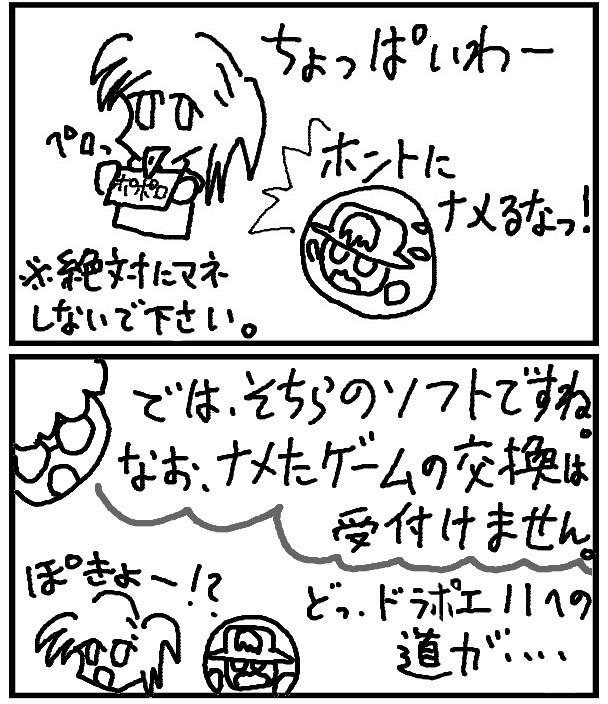 ちょっぱいわー
ペロっ
ポポロ
ホントに
ナメるなっ!
※絶対にマネ
しないで下さい。
では、そちらのソフトですね。
なお、ナメたゲームの交換は
受付けません。
ぽきょー!?
どっ、ドラポエ11への
道が・・・・